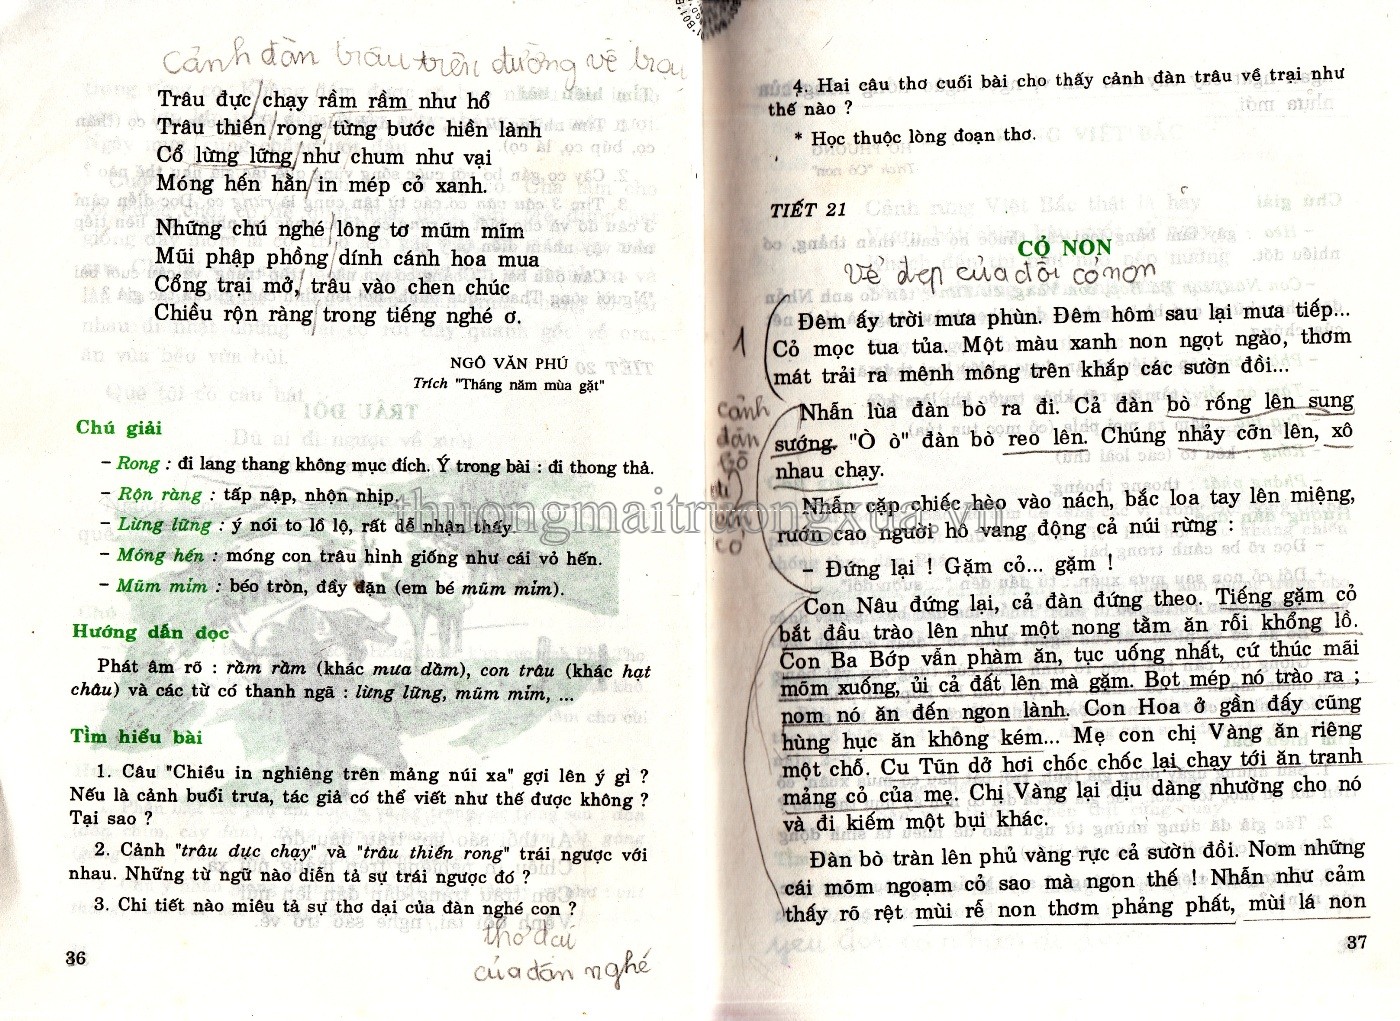 Cảnh đàn trâu trên đường về trại
Trâu đực chạy rầm rầm như hổ
Trâu thiến rong từng bước hiền lành
Cổ lừng lững như chum như vại
Móng hến hằn in mép cỏ xanh.
Những chú nghé lông tơ mũm mĩm
Mũi phập phồng dính cánh hoa mua
Cổng trại mở, trâu vào chen chúc
Chiều rộn ràng trong tiếng nghé ơ.
NGÔ VĂN PHÚ
Trích "Tháng năm mùa gặt"
Chú giải
– Rong : đi lang thang không mục đích. Ý trong bài : đi thong thả.
– Rộn ràng : tấp nập, nhộn nhịp.
– Lừng lững : ý nói to lồ lộ, rất dễ nhận thấy.
– Móng hến : móng con trâu hình giống như cái vỏ hến.
– Mũm mĩm : béo tròn, đầy đặn (em bé mũm mĩm).
Hướng dẫn đọc
Phát âm rõ : rầm rầm (khác mưa dầm), con trâu (khác hạt
châu) và các từ có thanh ngã : lừng lững, mũm mĩm, ...
Tìm hiểu bài
1. Câu "Chiều in nghiêng trên mảng núi xa" gợi lên ý gì ?
Nếu là cảnh buổi trưa, tác giả có thể viết như thế được không ?
Tại sao ?
2. Cảnh "trâu đực chạy" và "trâu thiến rong" trái ngược với
nhau. Những từ ngữ nào diễn tả sự trái ngược đó ?
3. Chi tiết nào miêu tả sự thơ dại của đàn nghé con ?
thơ dại
của đàn nghé
36
4. Hai câu thơ cuối bài cho thấy cảnh đàn trâu về trại như
thế nào ?
* Học thuộc lòng đoạn thơ.
TIẾT 21
CỎ NON
Vẻ đẹp của đồi cỏ non
1
Đêm ấy trời mưa phùn. Đêm hôm sau lại mưa tiếp...
Cỏ mọc tua tủa. Một màu xanh non ngọt ngào, thơm
mát trải ra mênh mông trên khắp các sườn đồi...
cảnh
đàn
bò
đi
ăn
cỏ
Nhẫn lùa đàn bò ra đi. Cả đàn bò rống lên sung
sướng. "Ò ò" đàn bò reo lên. Chúng nhảy cỡn lên, xô
nhau chạy.
Nhẫn cặp chiếc hèo vào nách, bắc loa tay lên miệng,
rướn cao người hô vang động cả núi rừng :
– Đứng lại ! Gặm cỏ... gặm !
Con Nâu đứng lại, cả đàn đứng theo. Tiếng gặm cỏ
bắt đầu trào lên như một nong tằm ăn rỗi khổng lồ.
Con Ba Bớp vẫn phàm ăn, tục uống nhất, cứ thúc mãi
mõm xuống, ủi cả đất lên mà gặm. Bọt mép nó trào ra ;
nom nó ăn đến ngon lành. Con Hoa ở gần đấy cũng
hùng hục ăn không kém... Mẹ con chị Vàng ăn riêng
một chỗ. Cu Tũn dở hơi chốc chốc lại chạy tới ăn tranh
mảng cỏ của mẹ. Chị Vàng lại dịu dàng nhường cho nó
và đi kiếm một bụi khác.
Đàn bò tràn lên phủ vàng rực cả sườn đồi. Nom những
cái mõm ngoạm cỏ sao mà ngon thế ! Nhẫn như cảm
thấy rõ rệt mùi rễ non thơm phảng phất, mùi lá non
37
thuongmaitruongxua.vn